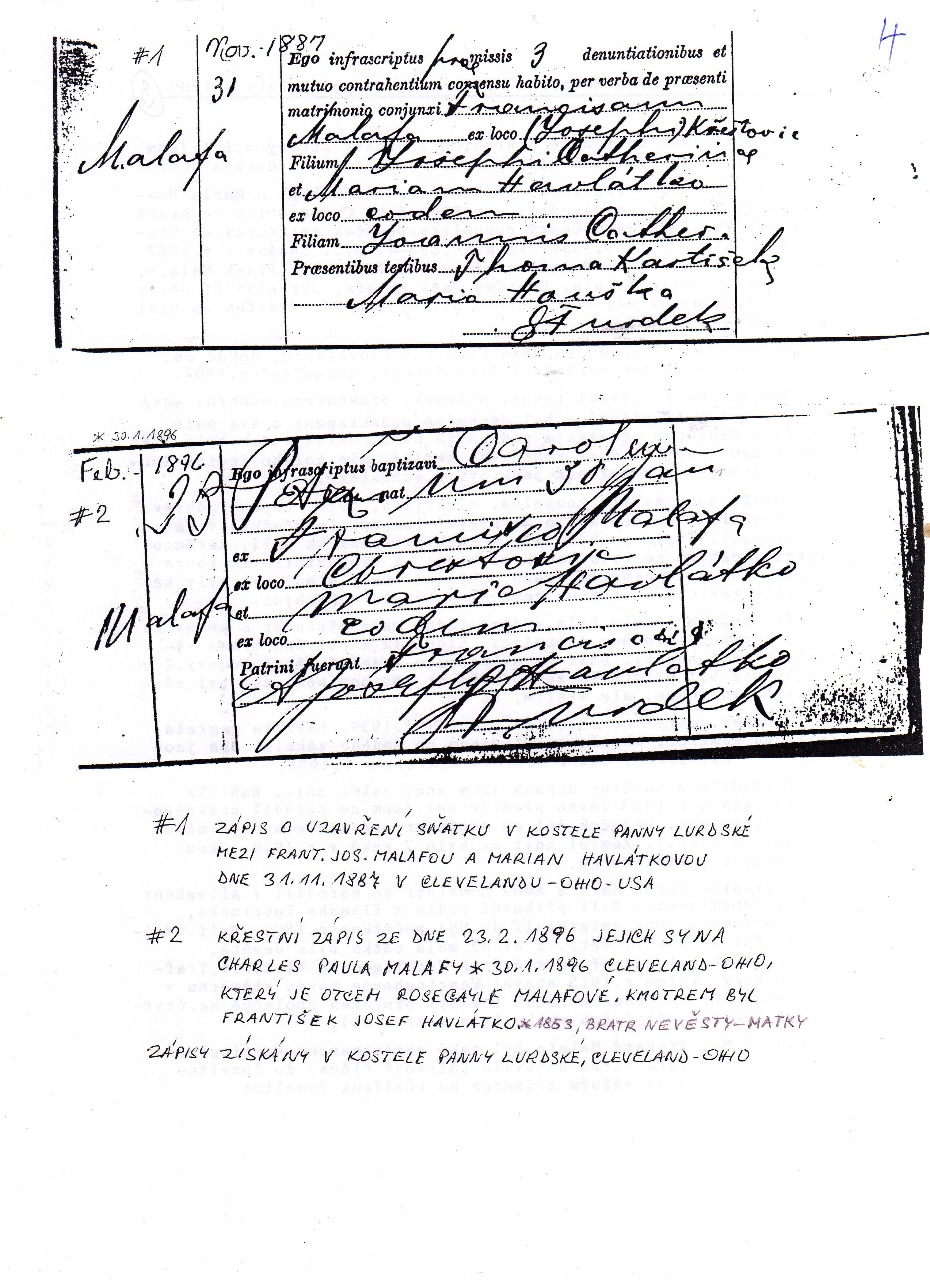 4
#1 Nov. - 1887
31
Malafa
Ego infrascriptus præmissis 3 denuntiationibus et
mutuo contrahentium consensu habito, per verba de præsenti
matrimonio conjunxi Franciscum
Malafa ex loco (Josephi) Křestovic
Filium Josephi Catherinae
et Mariam Havlátko
ex loco eodem
Filiam Joannis Cather.
Præsentibus testibus Thoma
Maria Houška
S Furdek
* 30.1.1896
Feb. - 1896
23
#2
Malafa
Ego infrascriptus baptizavi Carolum
nat 30 Jan
ex Francisco Malafa
ex loco
et Maria Havlátko
ex loco eodem
Patrini fuerunt
Et Josephus Havlatko
Furdek
#1 ZÁPIS O UZAVŘENÍ SŇATKU V KOSTELE PANNY LURDSKÉ
MEZI FRANT. JOS. MALAFOU A MARIAN HAVLÁTKOVOU
DNE 31.11.1887 V CLEVELANDU-OHIO-USA
#2 KŘESTNÍ ZÁPIS ZE DNE 23.2.1896 JEJICH SYNA
CHARLES PAULA MALAFY * 30.1.1896 CLEVELAND-OHIO,
KTERÝ JE OTCEM ROSEGAYLE MALAFOVÉ. KMOTREM BYL
FRANTIŠEK JOSEF HAVLÁTKO * 1853, BRATR NEVĚSTY-MATKY
ZÁPISY ZÍSKÁNY V KOSTELE PANNY LURDSKÉ, CLEVELAND-OHIO